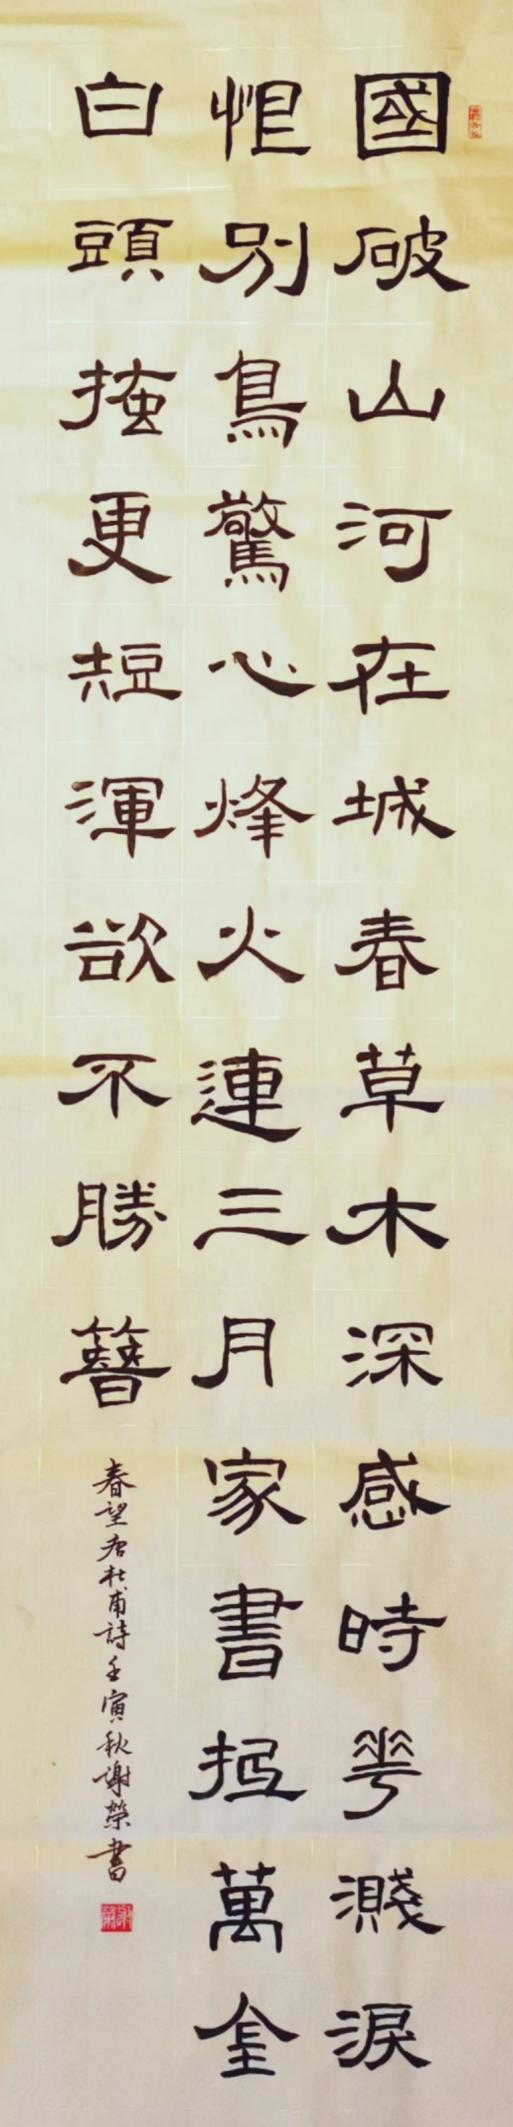 國破山河在城春草木深感時花濺淚
恨別鳥驚心烽火連三月家書抵萬金
白頭搔更短渾欲不勝簪
春望唐杜甫詩壬寅秋謝榮書